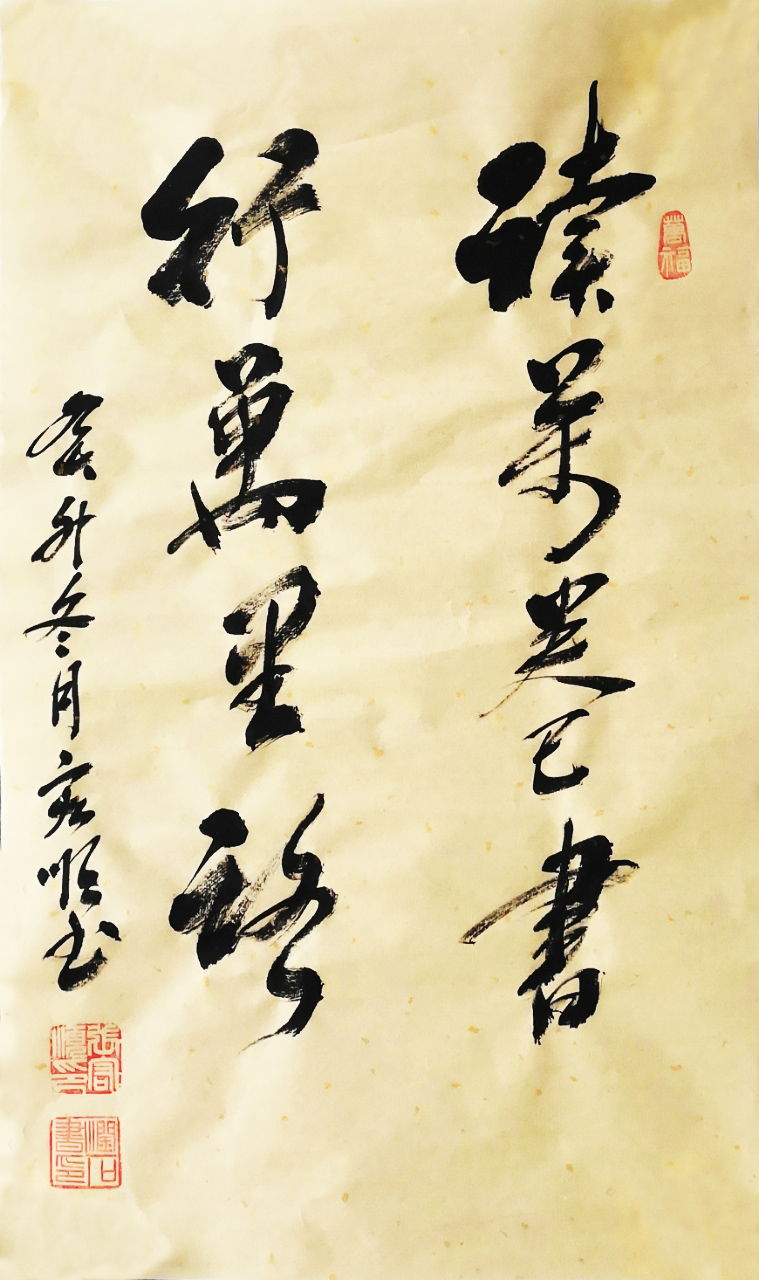 讀萬卷書
行萬里路
癸卯冬月宏順書
萬福